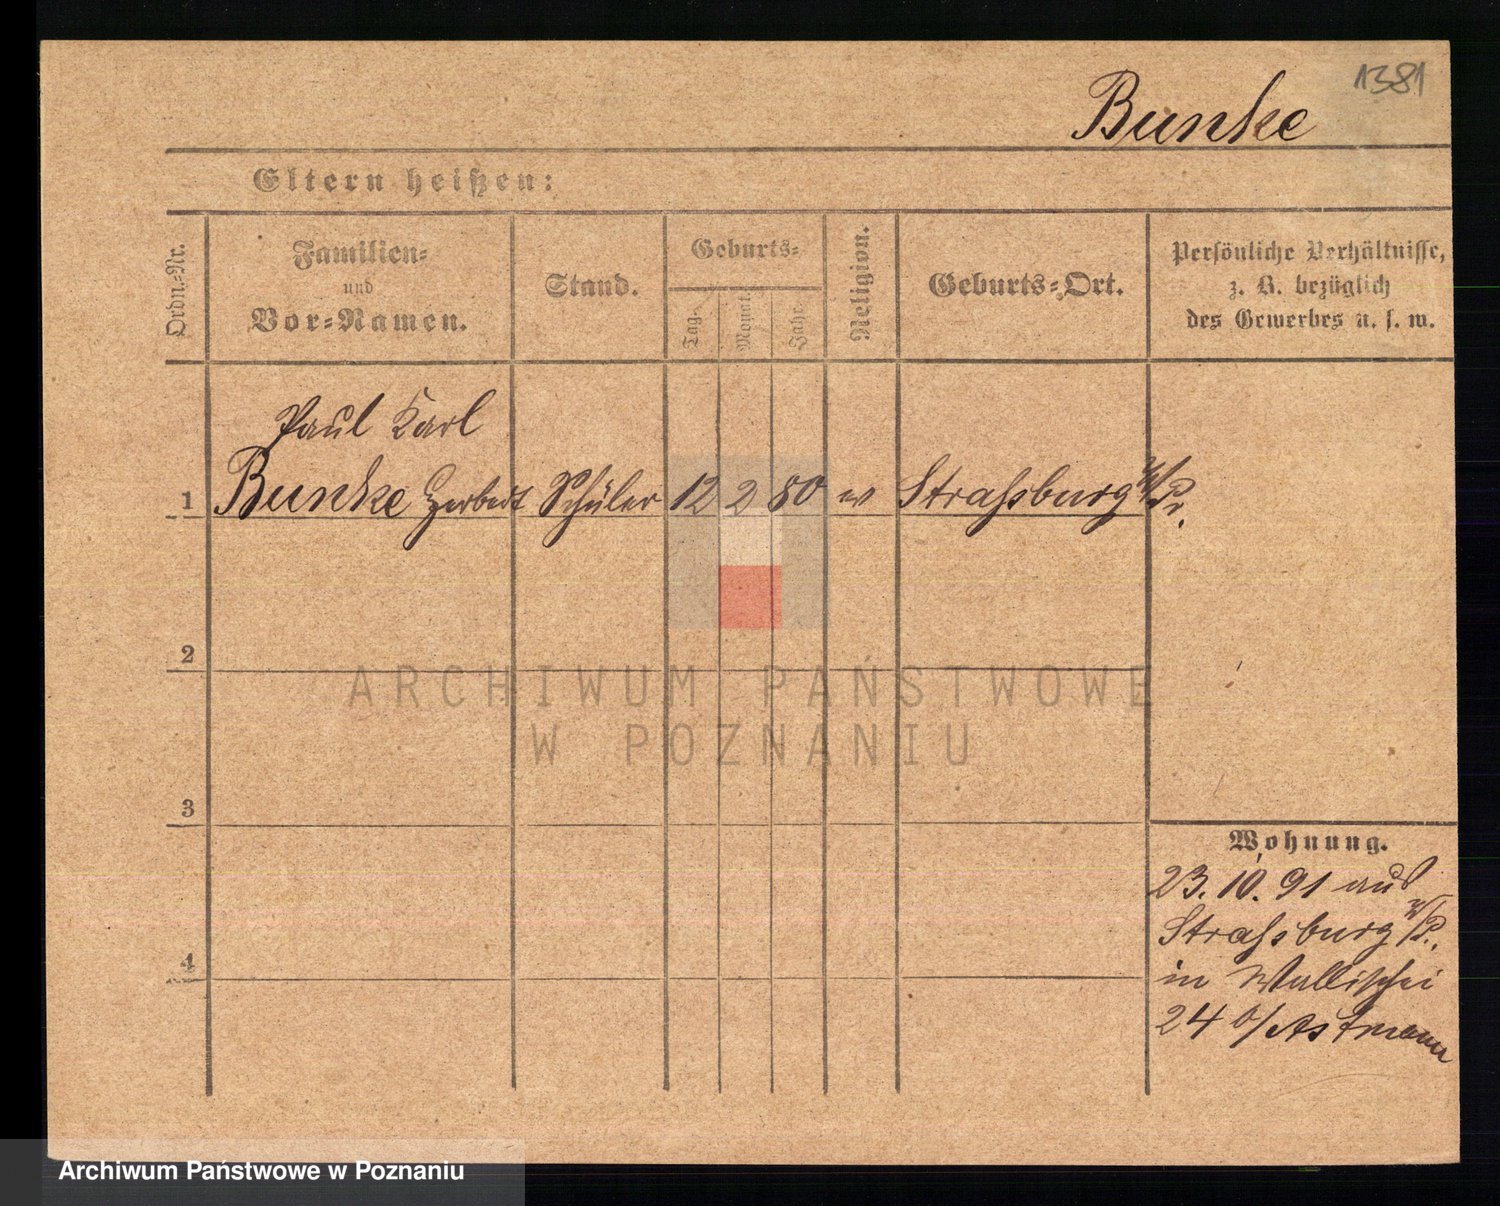 1381
Bunke
Eltern heißen:
Ordn.-Nr.
Familien-
und
Vor-Namen.
Stand.
Geburts-
Tag.
Monat.
Jahr.
Religion.
Geburts-Ort.
Persönliche Verhältnisse,
z. B. bezüglich
des Gewerbes u. s. w.
Paul Karl
1 Bunke Herbert Schüler 12 2 80 ev Straßburg W/Pr.
2
3
4
Wohnung.
23. 10. 91 aus
Straßburg W/P.
in Wallischei
24 b/ Astmann
ARCHIWUM PAŃSTWOWE
W POZNANIU
Archiwum Państwowe w Poznaniu